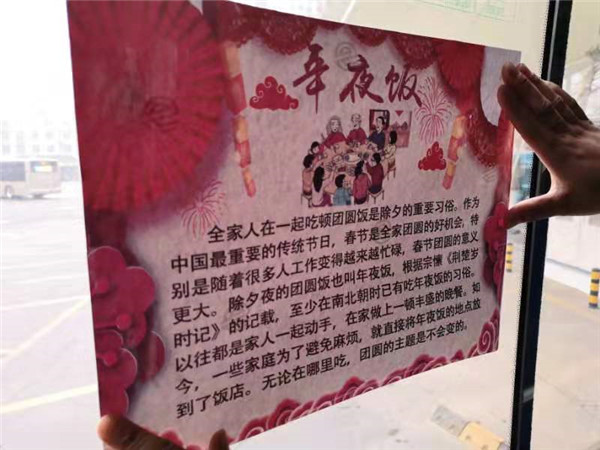 年夜饭
全家人在一起吃顿团圆饭是除夕的重要习俗。作为
中国最重要的传统节日，春节是全家团圆的好机会，特
别是随着很多人工作变得越来越忙碌，春节团圆的意义
更大。除夕夜的团圆饭也叫年夜饭，根据宗懔《荆楚岁
时记》的记载，至少在南北朝时已有吃年夜饭的习俗。
以往都是家人一起动手，在家做上一顿丰盛的晚餐。如
今，一些家庭为了避免麻烦，就直接将年夜饭的地点放
到了饭店。无论在哪里吃，团圆的主题是不会变的。